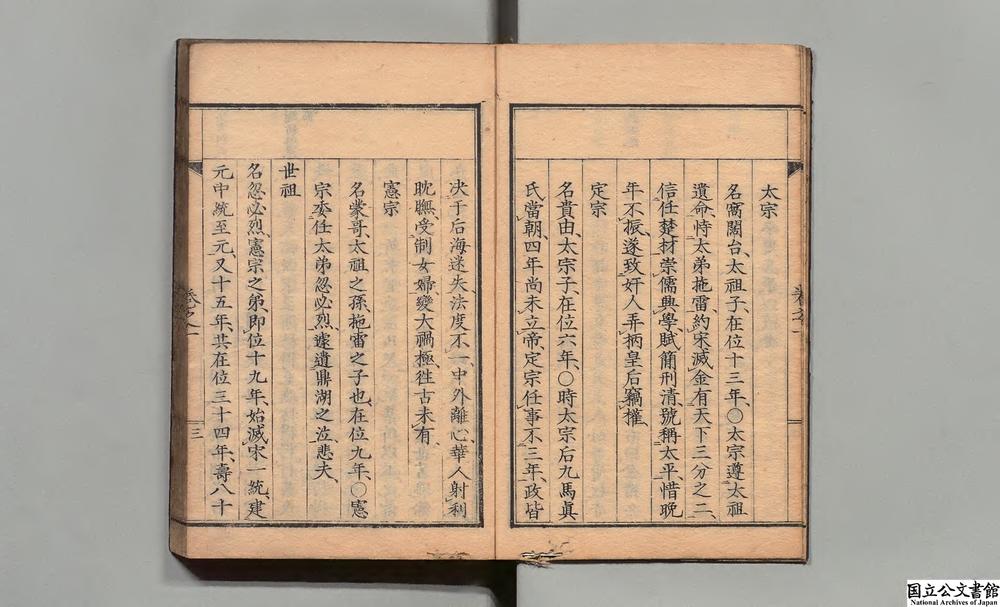 太宗
名窩闊台、太祖子、在位十三年、〇太宗遵太祖
遺命、恃太弟拖雷、約宋滅金、有天下三分之二、
信任楚材、崇儒興學、賦簡刑清、號稱太平、惜晚
年不振、遂致奸人弄柄、皇后竊權、
定宗
名貴由、太宗子、在位六年、〇時太宗后九馬眞
氏當朝、四年尚未立帝、定宗任事不三年、政皆
决于后、海迷失法度不一、中外離心、華人射利
耽𨢩、受制女婦、變大禍極、徃古未有、
憲宗
名蒙哥、太祖之孫、拖雷之子也、在位九年、〇憲
宗委任太弟忽必烈、遽遺鼎湖之泣、悲夫、
世祖
名忽必烈、憲宗之弟、即位十九年、始滅宋一統、建
元中統至元、又十五年、共在位三十四年、壽八十
卷之一
三
国立公文書館
National Archives of Japan